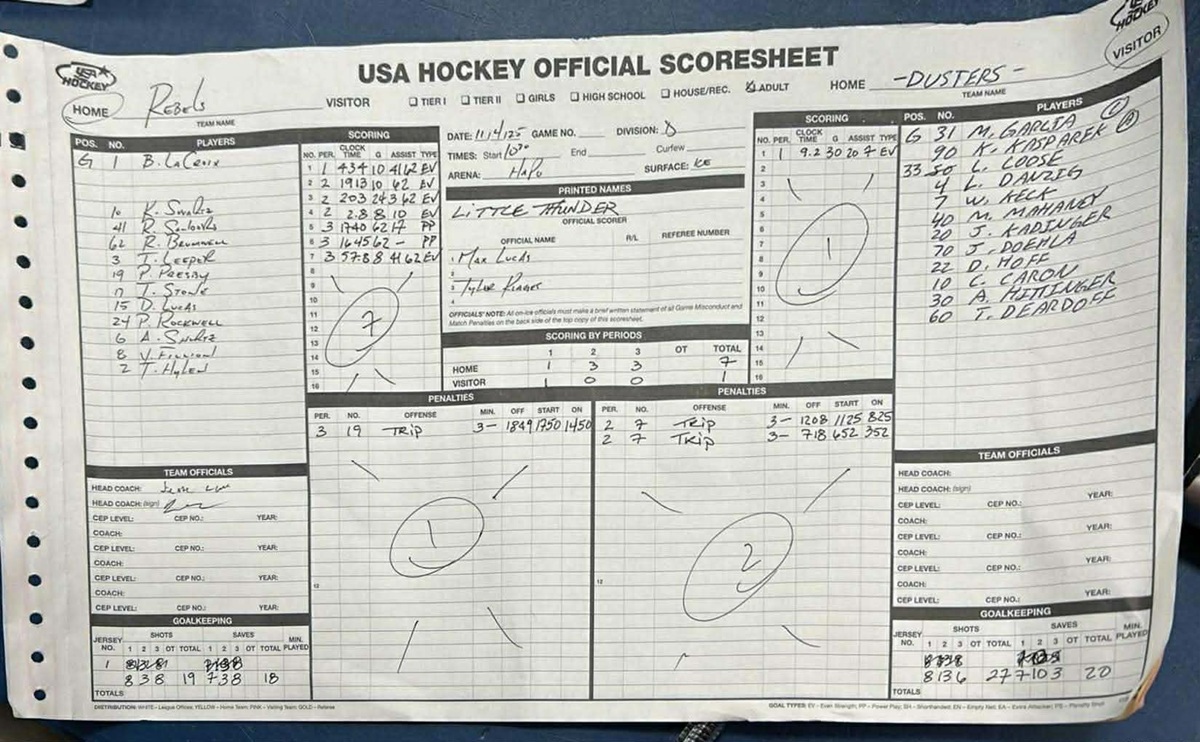 USA HOCKEY OFFICIAL SCORESHEET
USA HOCKEY
HOCKEY
HOME Rebels VISITOR
TEAM NAME
☐ TIER I ☐ TIER II ☐ GIRLS ☐ HIGH SCHOOL ☐ HOUSE/REC. ☑ ADULT
HOME -DUSTERS- VISITOR
TEAM NAME
POS. NO. PLAYERS
G 1 B. LaCroix
10 K. Smaltz
41 R.
62 R. Brumwell
3 T. Leeper
19 P. Presby
17 T. Stone
15 D. Lucas
24 P. Rockwell
6 A.
8 V. Fillion
2 T. Hylen
SCORING
NO. PER. CLOCK TIME G ASSIST TYPE
1 1 434 10 41 62 EV
2 2 1913 10 62 EV
3 2 203 24 3 62 EV
4 2 2.8 8 10 EV
5 3 1740 62 17 PP
6 3 1645 62 - PP
7 3 57.8 8 41 62 EV
8
9
10
11
12
13
14
15
16
7
DATE: 11/14/25 GAME NO. DIVISION: D
TIMES: Start 10:30 End Curfew
ARENA: HAPO SURFACE: ICE
PRINTED NAMES
LITTLE THUNDER
OFFICIAL SCORER
OFFICIAL NAME R/L REFEREE NUMBER
1 Max Lucas
2
3 Tyler
4
OFFICIALS' NOTE: All on-ice officials must make a brief written statement of all Game Misconduct and
Match Penalties on the back side of the top copy of this scoresheet.
SCORING BY PERIODS
1 2 3 OT TOTAL
HOME 1 3 3 7
VISITOR 1 0 0 1
SCORING
NO. PER. CLOCK TIME G ASSIST TYPE
1 1 9.2 30 20 7 EV
2
3
4
5
6
7
8
9
10
11
12
13
14
15
16
1
POS. NO. PLAYERS
G 31 M. GARCIA (C)
90 K. KASPAREK (A)
33 50 L. LOOSE
4 L. DANZIG
7 W. KECK
40 M. MAHANEY
20 J. KADINGER
70 J. DOEHLA
22 D. HOFF
10 C. CARON
30 A. HITTINGER
60 T. DEARDOFF
PENALTIES
PER. NO. OFFENSE MIN. OFF START ON
3 19 TRIP 3- 1849 1750 1450
12
1
PENALTIES
PER. NO. OFFENSE MIN. OFF START ON
2 7 TRIP 3- 1208 1125 825
2 7 TRIP 3- 718 652 352
12
2
TEAM OFFICIALS
HEAD COACH:
HEAD COACH: (sign)
CEP LEVEL: CEP NO.: YEAR:
COACH:
CEP LEVEL: CEP NO.: YEAR:
COACH:
CEP LEVEL: CEP NO.: YEAR:
COACH:
CEP LEVEL: CEP NO.: YEAR:
GOALKEEPING
JERSEY NO. SHOTS 1 2 3 OT TOTAL SAVES 1 2 3 OT TOTAL MIN. PLAYED
1
8 3 8 19 7 3 8 18
TOTALS
TEAM OFFICIALS
HEAD COACH:
HEAD COACH: (sign)
CEP LEVEL: CEP NO.: YEAR:
COACH:
CEP LEVEL: CEP NO.: YEAR:
COACH:
CEP LEVEL: CEP NO.: YEAR:
COACH:
CEP LEVEL: CEP NO.: YEAR:
GOALKEEPING
JERSEY NO. SHOTS 1 2 3 OT TOTAL SAVES 1 2 3 OT TOTAL MIN. PLAYED
8 13 6 27 7 10 3 20
TOTALS
DISTRIBUTION: WHITE - League Offices; YELLOW - Home Team; PINK - Visiting Team; GOLD - Referee
GOAL TYPES: EV - Even Strength, PP - Power Play, SH - Shorthanded, EN - Empty Net, EA - Extra Attacker, PS - Penalty Shot